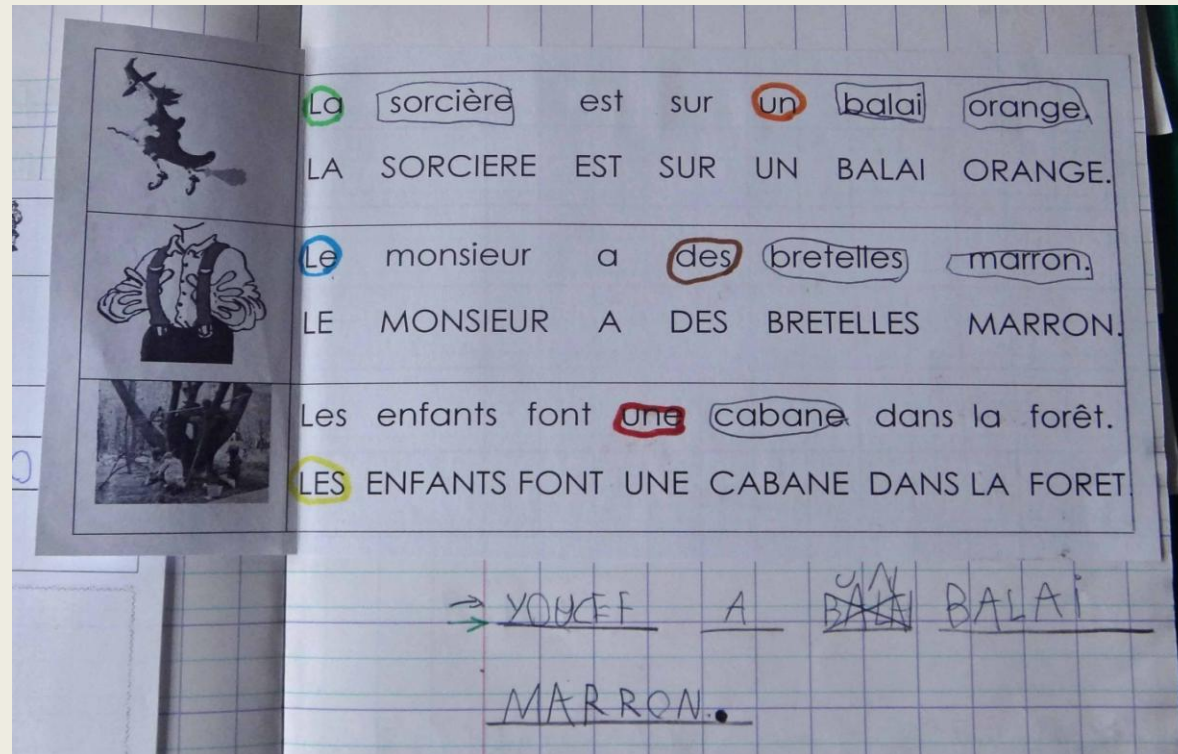 La sorcière est sur un balai orange.
LA SORCIERE EST SUR UN BALAI ORANGE.
Le monsieur a des bretelles marron.
LE MONSIEUR A DES BRETELLES MARRON.
Les enfants font une cabane dans la forêt.
LES ENFANTS FONT UNE CABANE DANS LA FORET.
UN
YOUCEF A BALAi
MARRON.